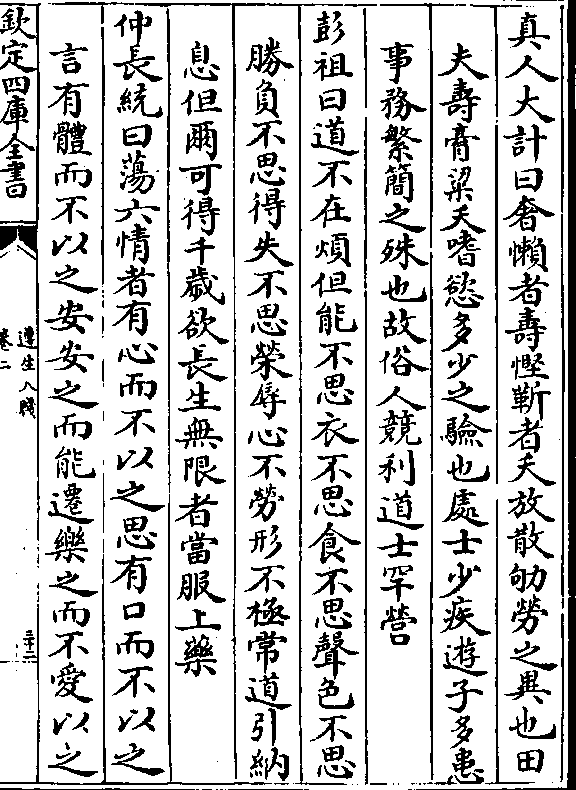 真人大計曰奢懶者壽慳靳者夭放散劬勞之異也田
夫壽膏粱夭嗜慾多少之驗也處士少疾遊子多患
事務繁簡之殊也故俗人競利道士罕營
彭祖曰道不在煩但能不思衣不思食不思聲色不思
勝負不思得失不思榮辱心不勞形不極常道引納
息但爾可得千歲欲長生無限者當服上藥
仲長統曰蕩六情者有心而不以之思有口而不以之
言有體而不以之安安之而能遷樂之而不愛以之
欽定四庫全書
遵生八牋
卷二
三十二